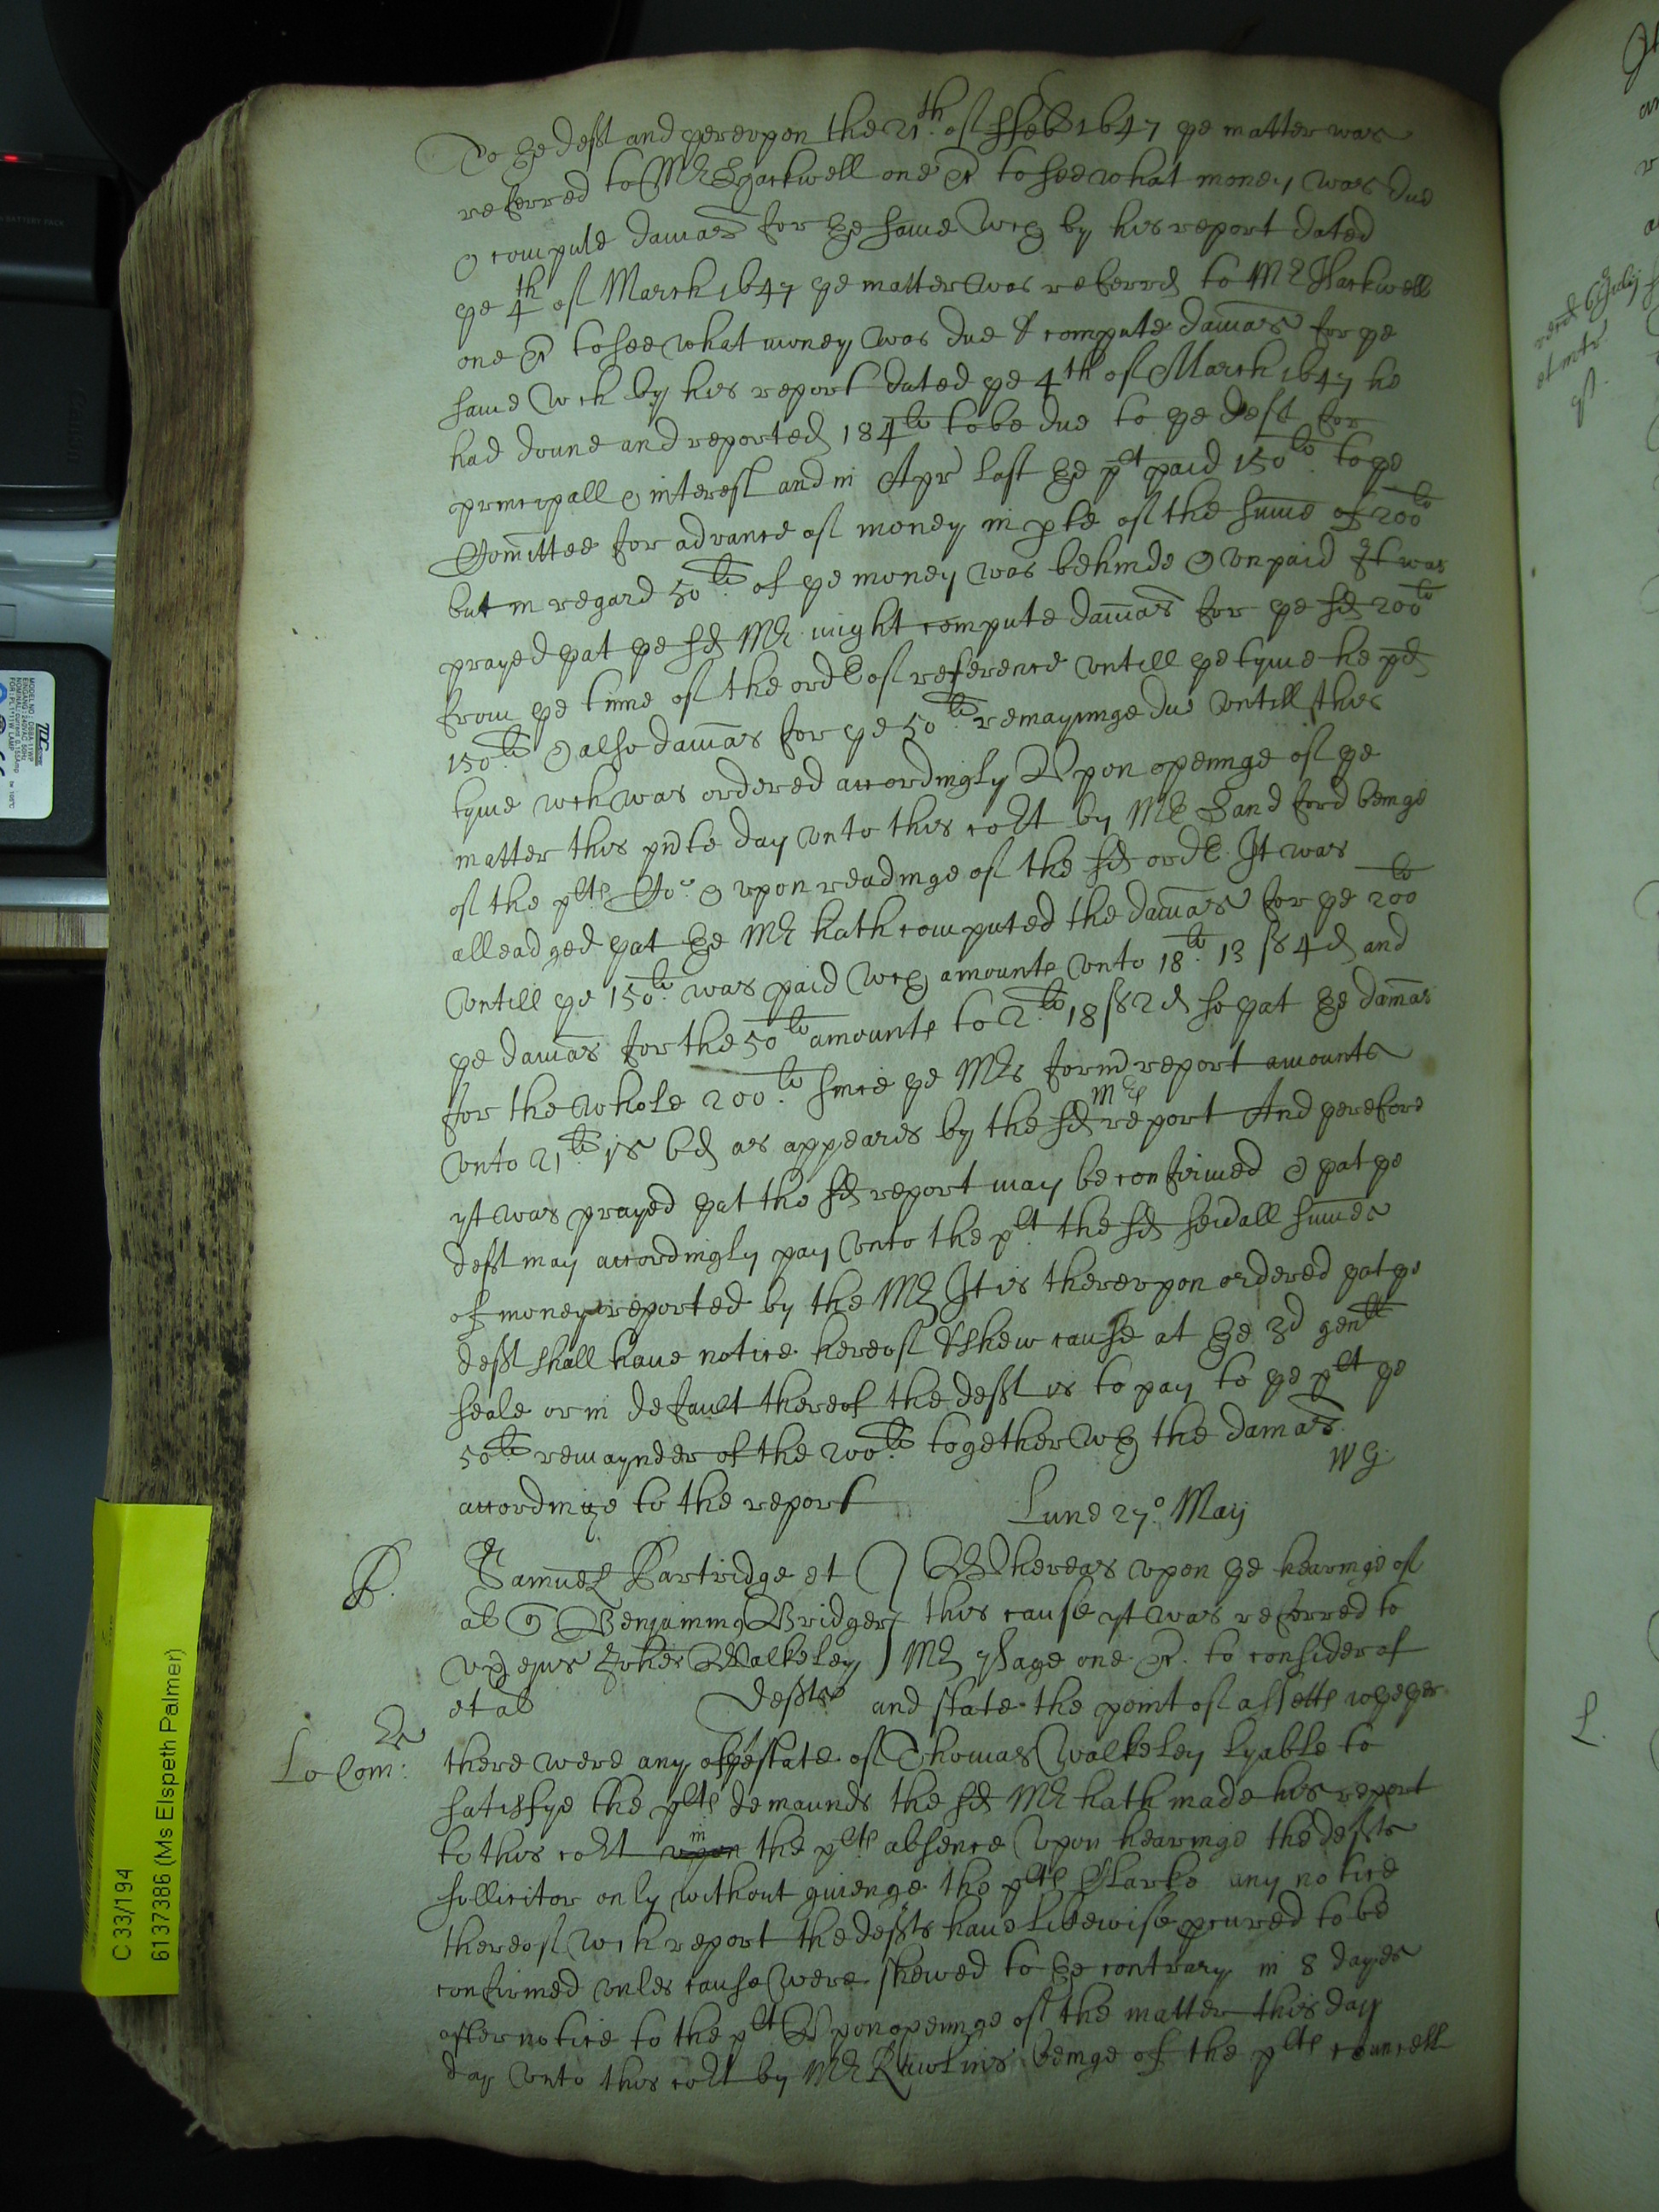 To ye deft and yereupon the 21th of ffeb 1647 ye matter was
referred to Mr Hackwell one &c to see what money was due
& compute damas for ye same wch by his report dated
ye 4th of March 1647 ye matter was referred to Mr Hackwell
one &c to see what money was due & compute damas for ye
same wch by his report dated ye 4th of March 1647 he
had donne and reported 184li to be due to ye deft for
principall & interest and in Apr last ye plt paid 150li to ye
Comittee for advance of money in pte of the sume of 200li
but in regard 50li of ye money was behinde & unpaid It was
prayed yat ye sd Mr might compute damas for ye sd 200li
from ye time of the ordr of reference untill ye tyme he pd
150li & also damas for ye 50li remayninge due untill this
tyme wch was ordered accordingly Upon openinge of ye
matter this pnte day unto this cort by Mr Sandford beinge
of the plts Co & upon readinge of the sd ordr It was
alleadged yat ye Mr hath computed the damas for ye 200li
untill ye 150li was paid wch amounts unto 18li 13s 4d and
ye damas for the 50li amounts to 2li 18s 2d so yat ye damas
for the whole 200li since ye Mrs former report amounts
unto 21li 1s 6d as appeares by the sd Mrs report And yerefore
yt was prayed yat the sd report may be confirmed & yat ye
deft may accordingly pay unto the plt the sd sevall sumes
of money reported by the Mr It is thereupon ordered yat ye
deft shall have notice hereof & shew cause at ye 3d genll
seale or in default thereof the deft is to pay to ye plt ye
50li remaynder of the 200li together wth the damas
accordinge to the report WG
Lune 27o May
P. Samuel Partridge et
al q Benjamin Bridger
ux ejus Walkeley
et al Defts
Whereas upon ye hearinge of
this cause yt was referred to
Mr Page one &c. to consider of
and state the point of assetts wheyer
Lo Com:
there were any of ye estate of Thomas Walkeley lyable to
satisfye the plts demaunds the sd Mr hath made his report
to this cort upon in the plts absence upon hearinge the defts
sollicitor only without giveinge the plts Clarke any notice
thereof wch report the defts have likewise pcured to be
confirmed unles cause were shewed to ye contrary in 8 dayes
after notice to the plt Upon openinge of the matter this day
day unto this cort by Mr Rawlins beinge of the plts councell
C 33/194
6137386 (Ms Elspeth Palmer)